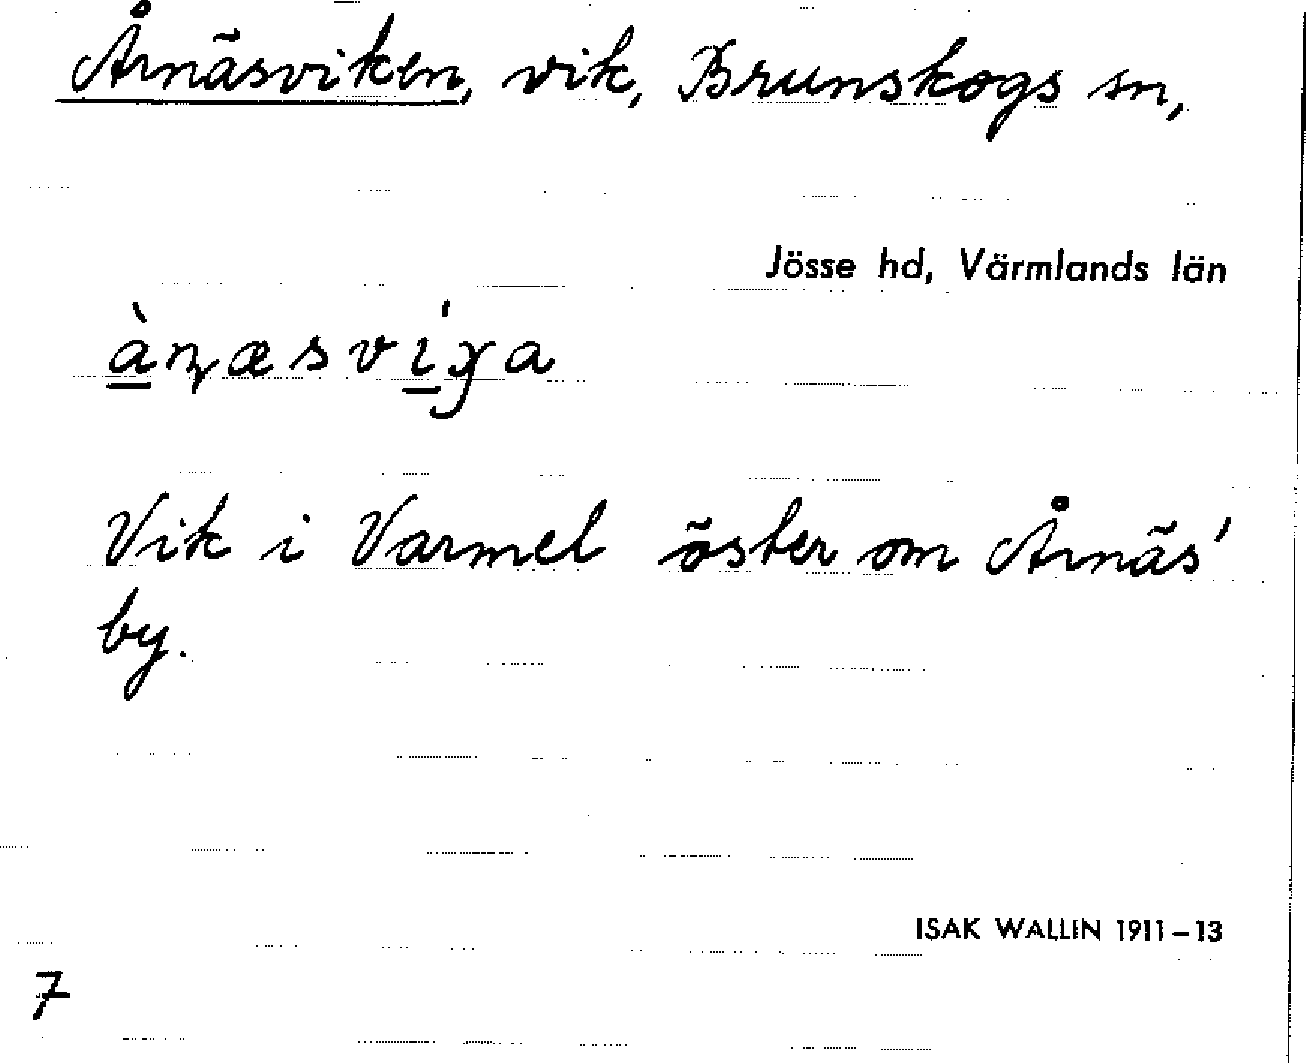 Årnäsviken, vik, Brunskogs sn,
Jösse hd, Värmlands län
à̱ɳæsvḭ́ɣa
Vik i Varmel öster om Årnäs'
by.
ISAK WALLIN 1911–13
7